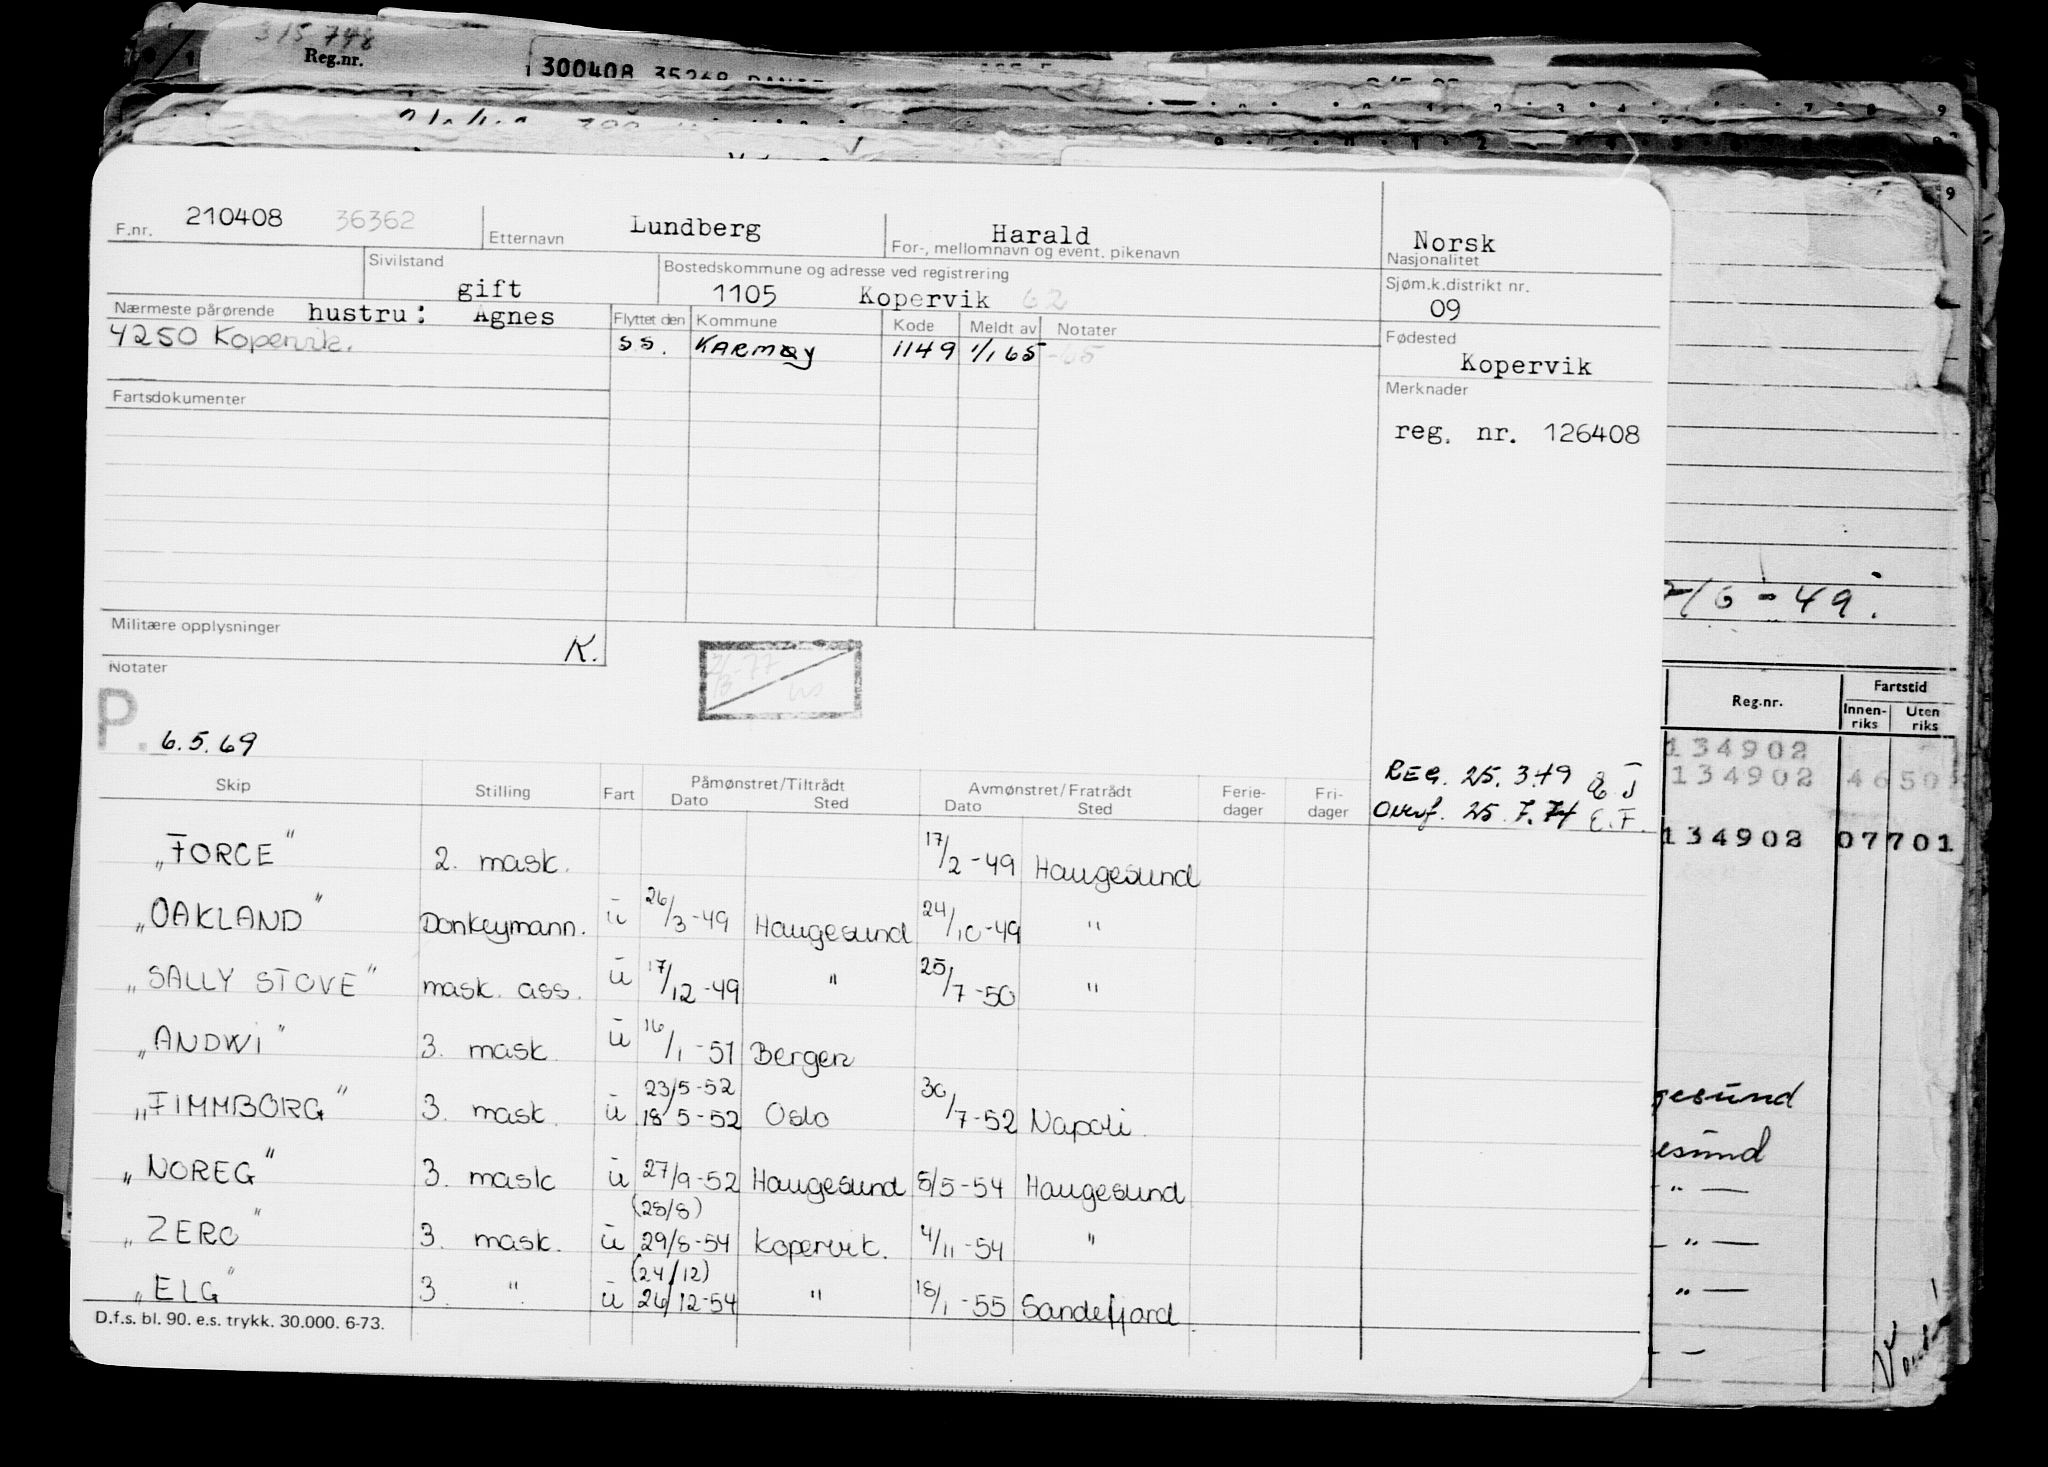 315 748
Reg.nr.
300408 35268
F.nr. 210408 36362 Etternavn Lundberg Harald For-, mellomnavn og event. pikenavn Norsk Nasjonalitet
Sivilstand gift Bostedskommune og adresse ved registrering 1105 Kopervik 62 Sjøm.k.distrikt nr. 09
Nærmeste pårørende hustru: Agnes Flyttet den Kommune Kode Meldt av Notater Fødested Kopervik
4250 Kopervik. S.S. KARMØY 1149 1/1 65 -65
Merknader
Fartsdokumenter
reg. nr. 126408
Militære opplysninger K.
Notater
P. 6.5.69
REG. 25.3.49
Overf. 25.7.74 E.F.
Skip Stilling Fart Påmønstret/Tiltrådt Dato Sted Avmønstret/Fratrådt Dato Sted Ferie-dager Fri-dager
„FORCE" 2. mask. 17/2-49 Haugesund
„OAKLAND" Donkeymann. ū 26/3-49 Haugesund 24/10-49 "
„SALLY STOVE" mask. ass. ū 17/12-49 " 25/7-50 "
„ANDWI" 3. mask. ū 16/1-51 Bergen
23/5-52
„FIMMBORG" 3. mask. ū 18/5-52 Oslo 30/7-52 Napoli.
„NOREG" 3. mask ū 27/9-52 Haugesund 8/5-54 Haugesund
(28/8)
„ZERO" 3. mask. ū 29/8-54 Kopervik. 4/11-54 "
(24/12)
„ELG" 3. " ū 26/12-54 " 18/1-55 Sandefjord
D.f.s. bl. 90. e.s. trykk. 30.000. 6-73.
/6-49.
Reg.nr. Fartstid
Innen-riks Uten riks
134902
134902 46 50
134902 07 701
gesund
esund
— " —
— " —
— " —